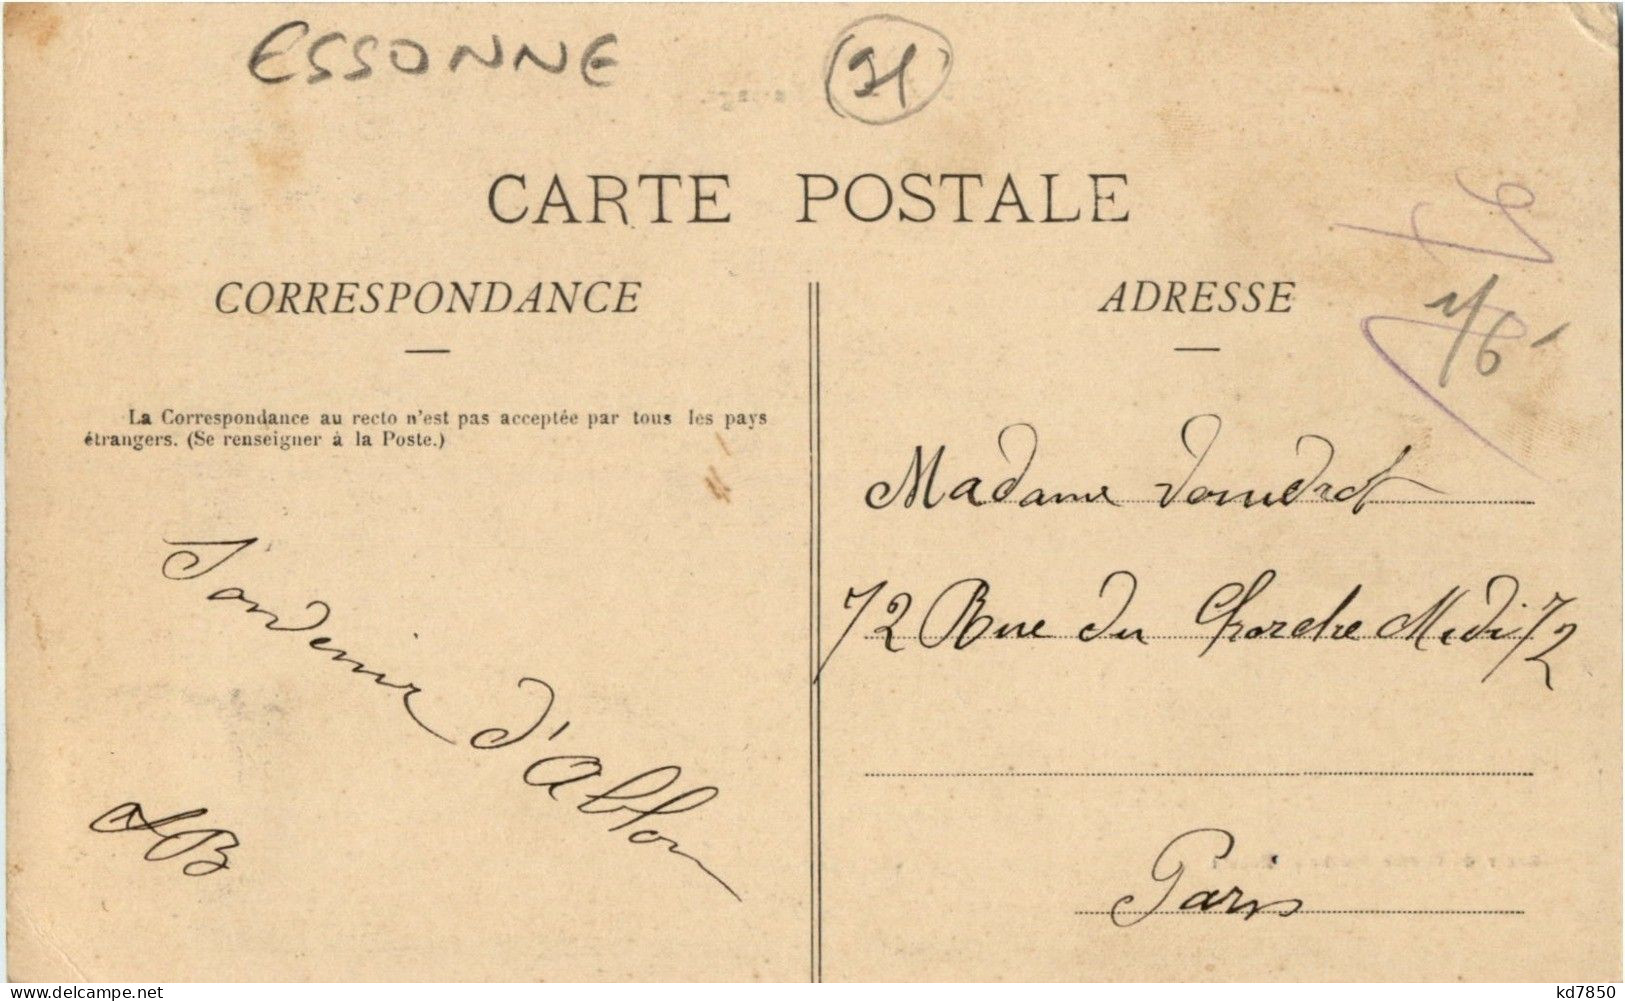 ESSONNE 91
CARTE POSTALE
CORRESPONDANCE
La Correspondance au recto n'est pas acceptée par tous les pays
étrangers. (Se renseigner à la Poste.)
Souvenir d'Ablon
AB
ADRESSE
Madame
72 Rue du Cherche Midi 72
Paris
kd7850